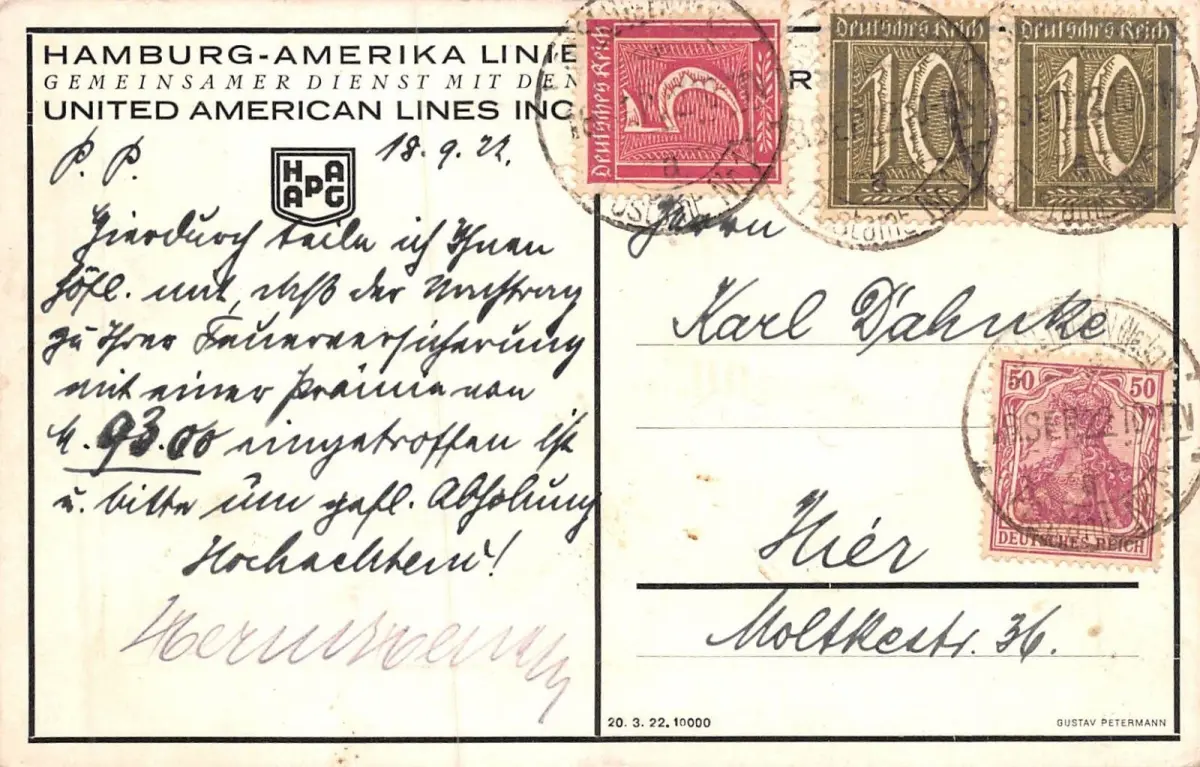 HAMBURG-AMERIKA LINIE
GEMEINSAMER DIENST MIT DEN
UNITED AMERICAN LINES INC
P. P.
18. 9. 22.
HAPAG
Hierdurch teile ich Ihnen
höfl. mit, daß der Nachtrag
zu Ihrer Feuerversicherung
mit einer Prämie von
M. 93.00 eingetroffen ist
u. bitte um gefl. Abholung
Hochachtend!
Deutsches Reich
5
Deutsches Reich
10
Deutsches Reich
10
R
Herrn
Karl Dahnke
50 50
DEUTSCHES REICH
Hier
Moltkestr. 36.
20. 3. 22. 10000
GUSTAV PETERMANN